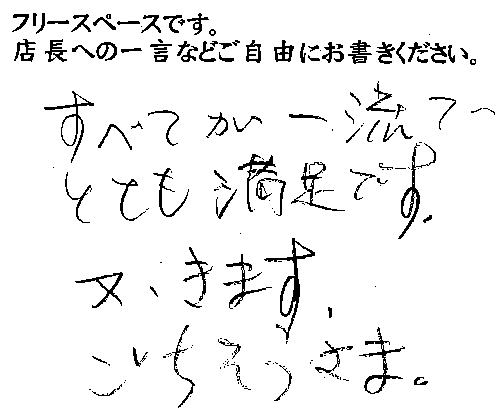 フリースペースです。
店長への一言などご自由にお書きください。
すべてが一流で
とても満足です。
又、きます。
ごちそうさま。